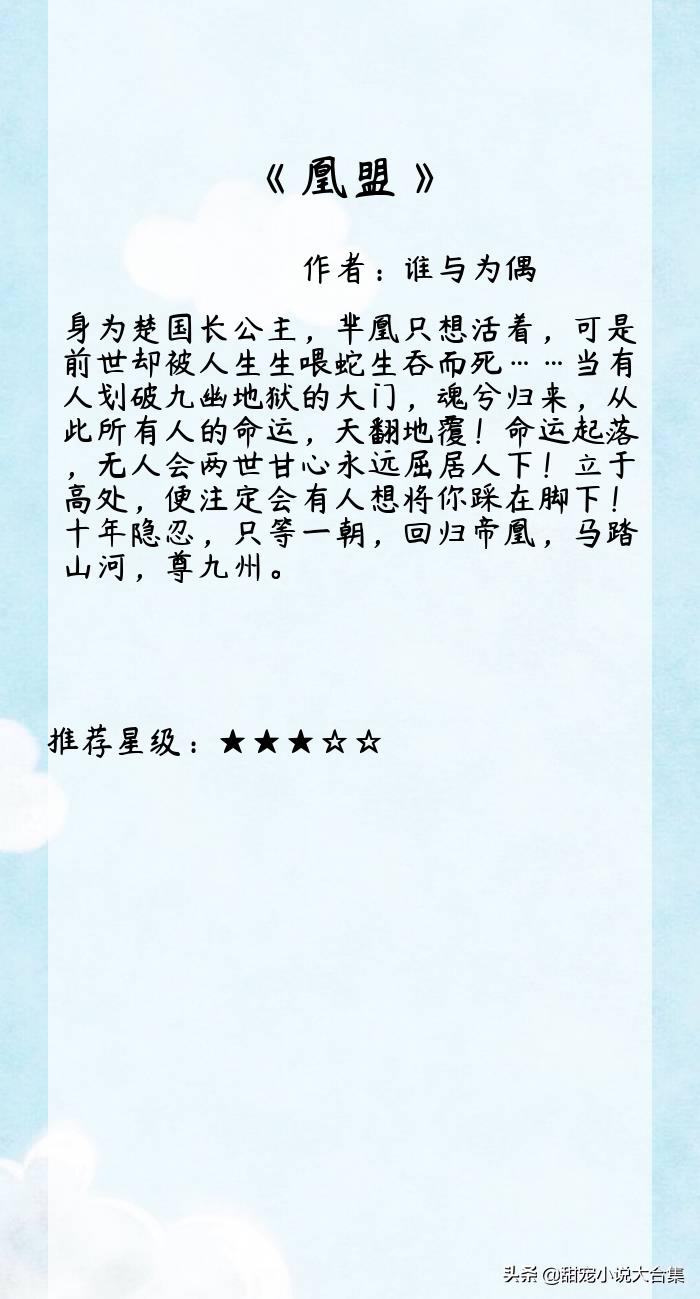 《凰盟》
作者：谁与为偶
身为楚国长公主，芈凰只想活着，可是
前世却被人生生喂蛇生吞而死……当有
人划破九幽地狱的大门，魂兮归来，从
此所有人的命运，天翻地覆！命运起落
，无人会两世甘心永远屈居人下！立于
高处，便注定会有人想将你踩在脚下！
十年隐忍，只等一朝，回归帝凰，马踏
山河，尊九州。
推荐星级：★★★☆☆
头条 @甜宠小说大台集